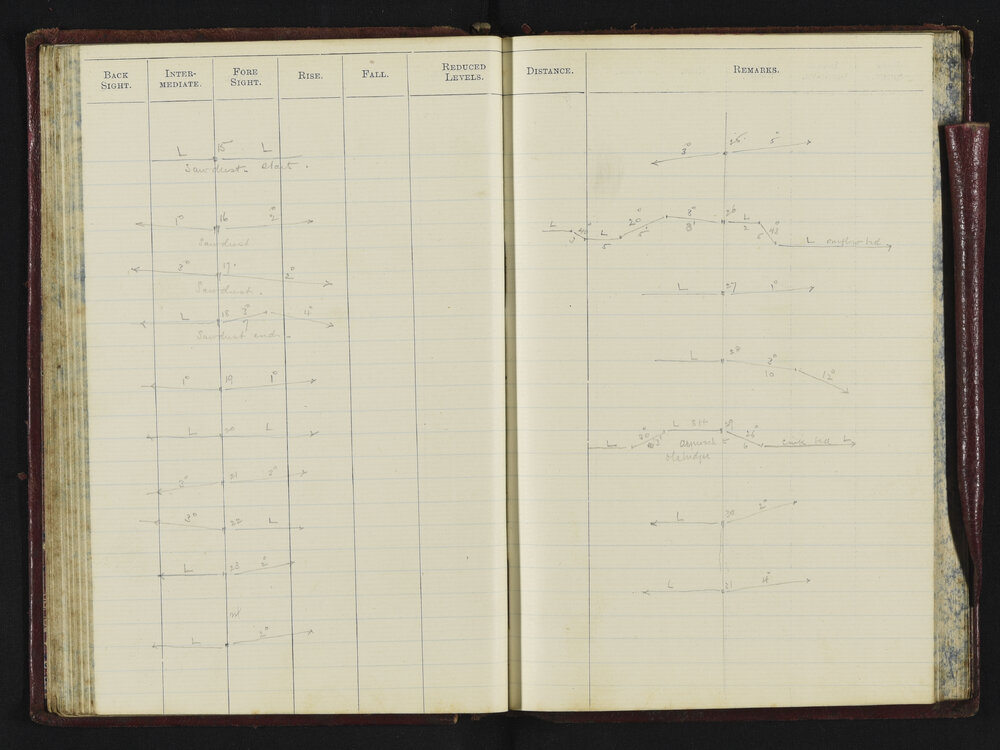 BACK SIGHT.
INTER-MEDIATE.
FORE SIGHT.
RISE.
FALL.
REDUCED LEVELS.
L 15 L
Sawdust start.
1° 16 2°
Sawdust
3° 17 2°
Sawdust.
L 18 3° 4°
7
Sawdust end.
1° 19 1°
L 20 L
3° 21 2°
3° 22 L
L 23 2°
24
L 2°
DISTANCE.
REMARKS.
3° 25 5°
L 40° L 20° 8° 26 L 43° L
3 5 5 8 2 6
L 27 1°
L 28 3° 12°
10
L 30° L 29 26° L
approach 5 6 bed
old bridge
L 30 2°
L 31 4°